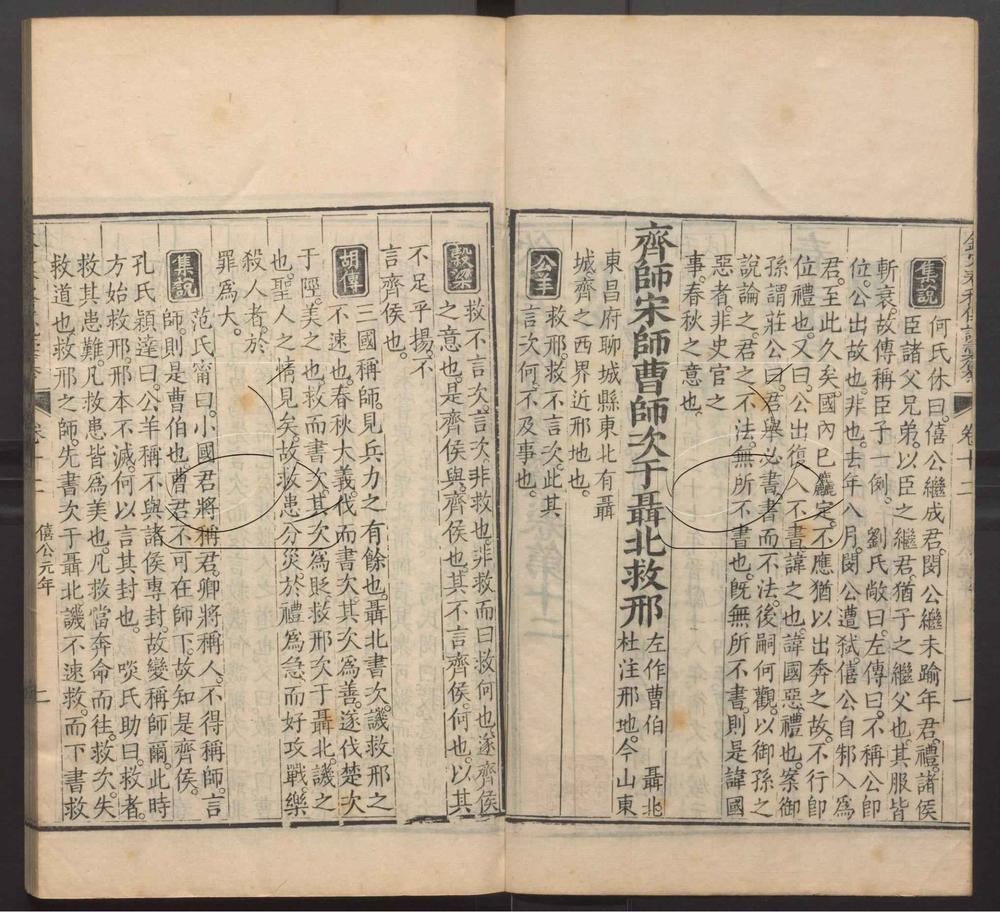 卷十二
一
集說
何氏休曰僖公繼成君閔公繼未踰年君禮諸侯
臣諸父兄弟以臣之繼君猶子之繼父也其服皆
斬衰故傳稱臣子一例
劉氏敞曰左傳曰不稱公即
位公出故也非也去年八月閔公遭弒僖公自邾入為
君至此久矣國內已麤定不應猶以出奔之故不行即
位禮也又曰公出復入不書諱之也諱國惡禮也案御
孫謂莊公曰君舉必書書而不法後嗣何觀以御孫之
說論之君之不法無所不書也既無所不書則是諱國
惡者非史官之
事春秋之意也
齊師宋師曹師次于聶北救邢
左作曹伯
聶北
杜注邢地今山東
東昌府聊城縣東北有聶
城齊之西界近邢地也
公羊
救邢救不言次此其
言次何不及事也
穀梁
救不言次言次非救也非救而曰救何也遂齊侯
之意也是齊侯與齊侯也其不言齊侯何也以其
不足乎揚不
言齊侯也
胡傳
三國稱師見兵力之有餘也聶北書次譏救邢之
不速也春秋大義伐而書次其次為善遂伐楚次
于陘美之也救而書次其次為貶救邢次于聶北譏之
也聖人之情見矣故救患分災於禮為急而好攻戰樂
殺人者於
罪為大
集說
范氏甯曰小國君將稱君卿將稱人不得稱師言
師則是曹伯也曹君不可在師下故知是齊侯
孔氏穎達曰公羊稱不與諸侯專封故變稱師爾此時
方始救邢邢本不滅何以言其封也
啖氏助曰救者
救其患難凡救患皆為美也凡救當奔命而往救次失
救道也救邢之師先書次于聶北譏不速救而下書救
僖公元年
二